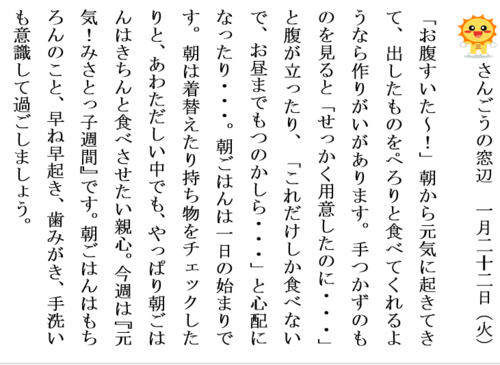 さんごうの窓辺　一月二十二日（火）
「お腹すいた～！」朝から元気に起きてき
て、出したものをぺろりと食べてくれるよ
うなら作りがいがあります。手つかずのも
のを見ると「せっかく用意したのに・・・」
と腹が立ったり、「これだけしか食べない
で、お昼までもつのかしら・・・」と心配に
なったり・・・。朝ごはんは一日の始まりで
す。朝は着替えたり持ち物をチェックした
りと、あわただしい中でも、やっぱり朝ごは
んはきちんと食べさせたい親心。今週は『元
気！みさとっ子週間』です。朝ごはんはもち
ろんのこと、早ね早起き、歯みがき、手洗い
も意識して過ごしましょう。